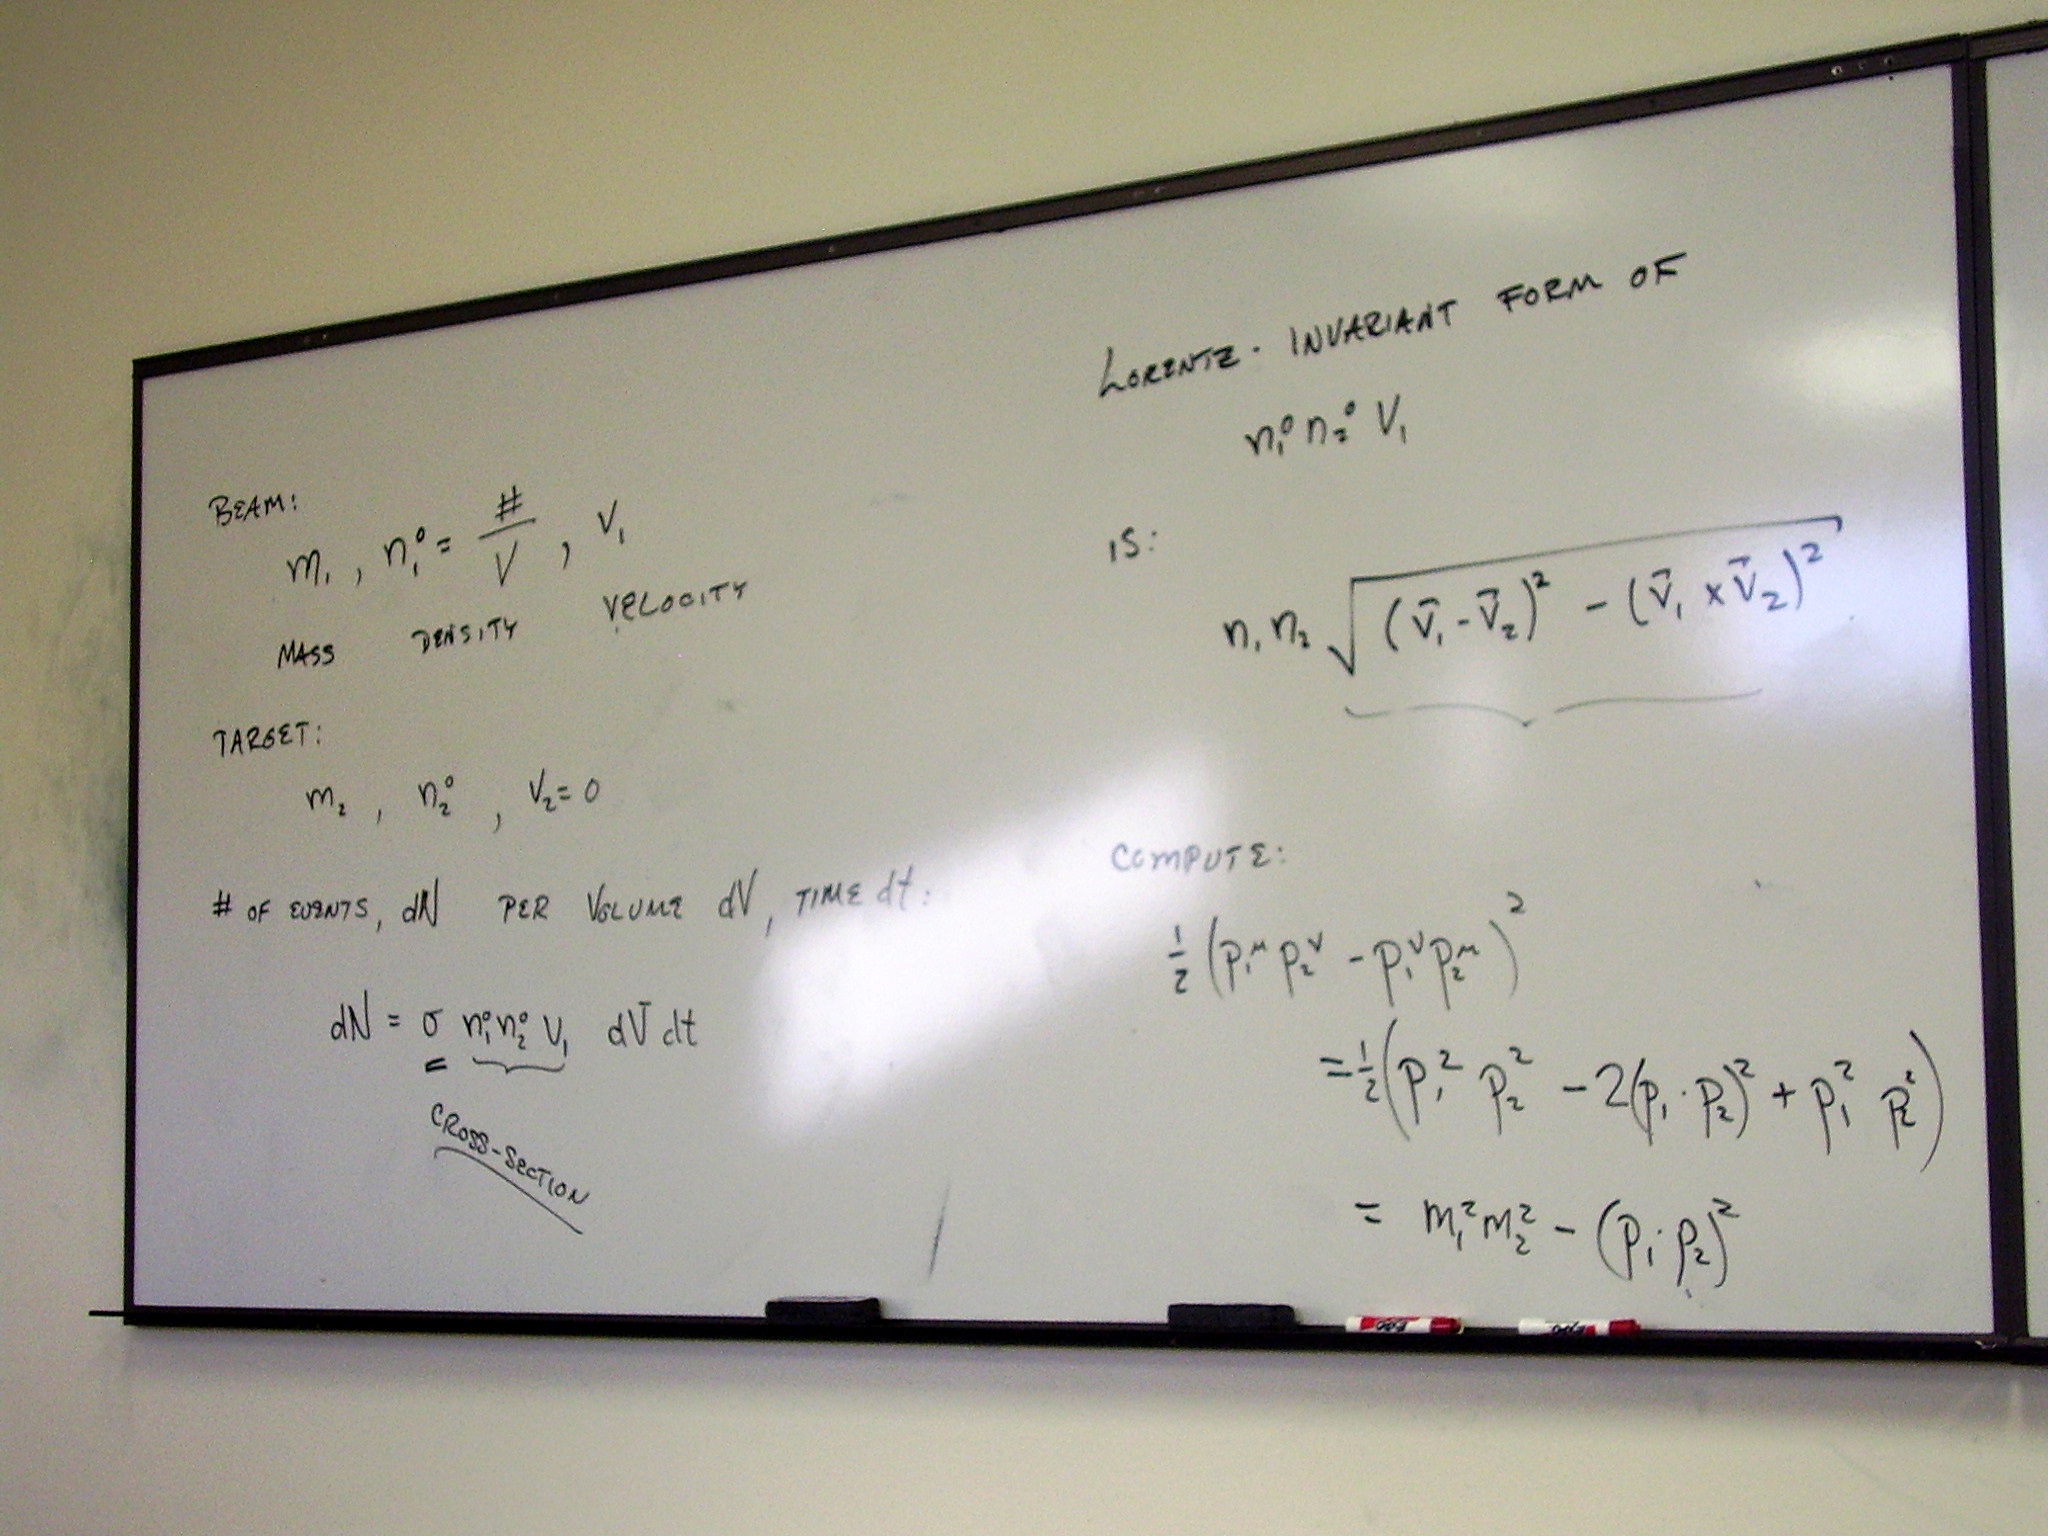 BEAM:
m₁ , n₁⁰ = #/V , v₁
MASS DENSITY VELOCITY
TARGET:
m₂ , n₂⁰ , v₂ = 0
# OF EVENTS, dN PER VOLUME dV, TIME dt:
dN = σ n₁⁰ n₂⁰ v₁ dV dt
CROSS-SECTION
LORENTZ-INVARIANT FORM OF
n₁⁰ n₂⁰ V₁
IS:
n₁ n₂ √((v⃗₁ - v⃗₂)² - (v⃗₁ × v⃗₂)²)
COMPUTE:
½ (p₁^μ p₂^ν - p₁^ν p₂^μ)²
= ½ (p₁² p₂² - 2(p₁ · p₂)² + p₁² p₂²)
= m₁² m₂² - (p₁ · p₂)²
EXPO
EXPO